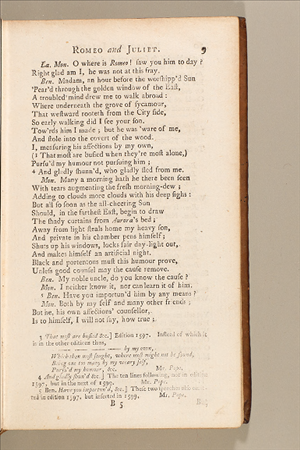 ROMEO and JULIET. 9
La. Mon. O where is Romeo! saw you him to day?
Right glad am I, he was not at this fray.
Ben. Madam, an hour before the worshipp'd Sun
'Pear'd through the golden window of the East,
A troubled mind drew me to walk abroad:
Where underneath the grove of sycamour,
That westward rooteth from the City side,
So early walking did I see your son.
Tow'rds him I made; but he was 'ware of me,
And stole into the covert of the wood.
I, measuring his affections by my own,
(3 That most are busied when they're most alone,)
Pursu'd my humour not pursuing him;
4 And gladly shunn'd, who gladly fled from me.
Mon. Many a morning hath he there been seen
With tears augmenting the fresh morning-dew;
Adding to clouds more clouds with his deep sighs:
But all so soon as the all-cheering Sun
Should, in the farthest East, begin to draw
The shady curtains from Aurora's bed;
Away from light steals home my heavy son,
And private in his chamber pens himself;
Shuts up his windows, locks fair day-light out,
And makes himself an artificial night.
Black and portentous must this humour prove,
Unless good counsel may the cause remove.
Ben. My noble uncle, do you know the cause?
Mon. I neither know it, nor can learn it of him.
5 Ben. Have you importun'd him by any means?
Mon. Both by my self and many other friends;
But he, his own affections' counsellor,
Is to himself, I will not say, how true;
3 That most are busied &c.] Edition 1597. Instead of which it
is in the other editions thus,
by my own,
Which then most sought, where most might not be found,
Being one too many by my weary self,
Pursu'd my humour, &c. Mr. Pope.
4 And gladly shunn'd &c.] The ten lines following, not in edition
1597, but in the next of 1599. Mr. Pope.
5 Ben. Have you importun'd, &c.] These two speeches
ted in edition 1597, but inserted in 1599. Mr. Pope.
B 5